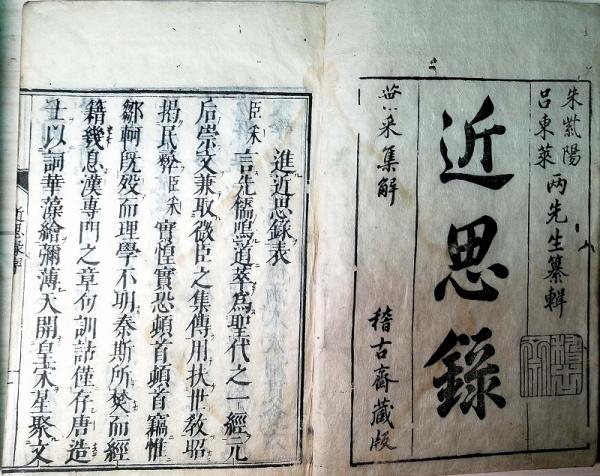 朱紫陽
呂東萊
兩先生纂輯
近思錄
采集解
稽古齋藏版
進近思錄表
臣采言先儒鳴道萃爲聖代之一經元
后崇文兼取微臣之集傳用扶世敎昭
揭民彝臣采實惶實恐頓首頓首竊惟
鄒軻旣歿而理學不明秦斯所焚而經
籍幾息漢專門之章句訓詁僅存唐造
士以詞華藻繪彌薄天開皇宋星聚文
近思錄